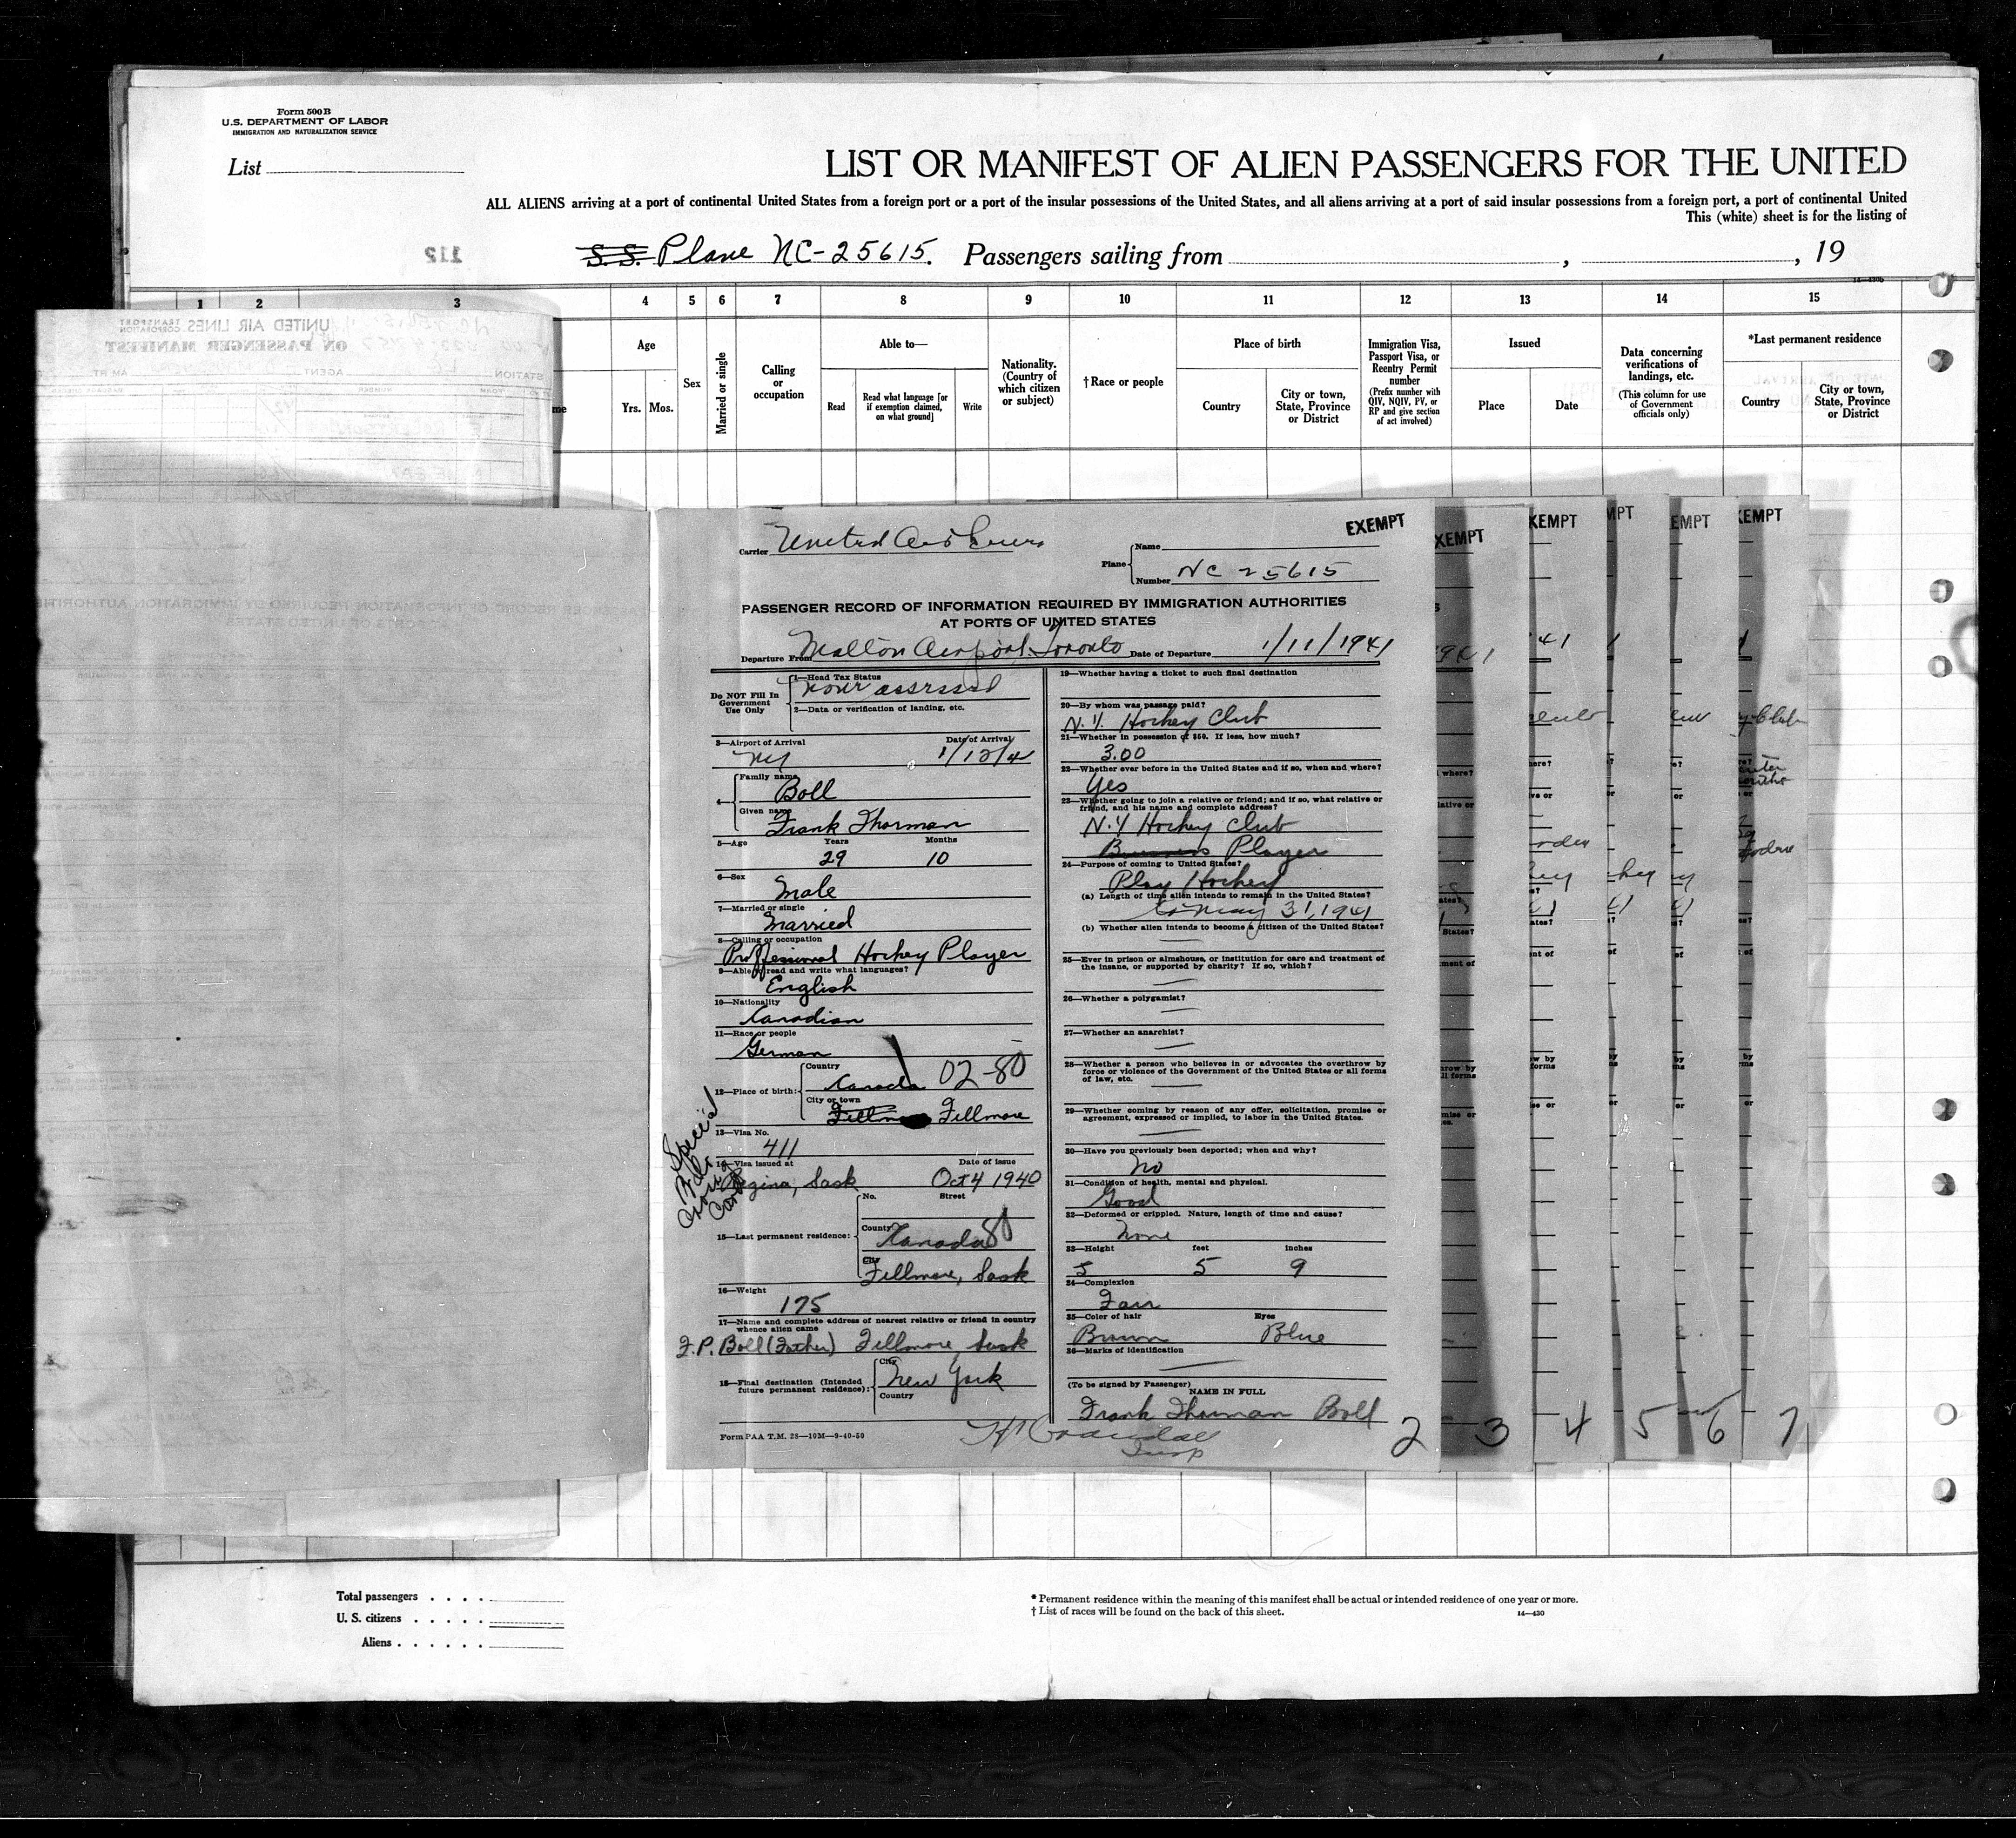 Form 500 B
U.S. DEPARTMENT OF LABOR
IMMIGRATION AND NATURALIZATION SERVICE
List
LIST OR MANIFEST OF ALIEN PASSENGERS FOR THE UNITED
ALL ALIENS arriving at a port of continental United States from a foreign port or a port of the insular possessions of the United States, and all aliens arriving at a port of said insular possessions from a foreign port, a port of continental United
This (white) sheet is for the listing of
112
S.S. Plane NC-25615. Passengers sailing from , , 19
1 2 3 4 5 6 7 8 9 10 11 12 13 14 15
UNITED AIR LINES TRANSPORT CORPORATION
ON PASSENGER MANIFEST
STATION AGENT
Age
Yrs. Mos.
Sex
Married or single
Calling or occupation
Able to—
Read
Read what language [or if exemption claimed, on what ground]
Write
Nationality. (Country of which citizen or subject)
†Race or people
Place of birth
Country
City or town, State, Province or District
Immigration Visa, Passport Visa, or Reentry Permit number
(Prefix number with QIV, NQIV, PV, or RP and give section of act involved)
Issued
Place
Date
Data concerning verifications of landings, etc.
(This column for use of Government officials only)
*Last permanent residence
Country
City or town, State, Province or District
EXEMPT
Carrier United Air Lines
Plane
Name
Number NC 25615
PASSENGER RECORD OF INFORMATION REQUIRED BY IMMIGRATION AUTHORITIES
AT PORTS OF UNITED STATES
Departure From Malton Airport Toronto Date of Departure 1/11/1941
Do NOT Fill In Government Use Only
1—Head Tax Status
none assessed
2—Data or verification of landing, etc.
3—Airport of Arrival Date of Arrival
NY 1/12/4
4—
Family name
Boll
Given name
Frank Thorman
5—Age Years Months
29 10
6—Sex
Male
7—Married or single
Married
8—Calling or occupation
Professional Hockey Player
9—Able to read and write what languages?
English
10—Nationality
Canadian
11—Race or people
German
12—Place of birth:
Country
Canada 02-80
City or town
Fillmore
13—Visa No.
411
14—Visa issued at Date of issue
Regina, Sask Oct 4 1940
Special
15—Last permanent residence:
No. Street
Country
Canada 80
City
Fillmore, Sask
16—Weight
175
17—Name and complete address of nearest relative or friend in country whence alien came
F.P. Boll (Father) Fillmore, Sask
18—Final destination (Intended future permanent residence):
City
New York
Country
Form PAA T.M. 28—10M—9-40-50
19—Whether having a ticket to such final destination
20—By whom was passage paid?
N.Y. Hockey Club
21—Whether in possession of $50. If less, how much?
3.00
22—Whether ever before in the United States and if so, when and where?
Yes
23—Whether going to join a relative or friend; and if so, what relative or friend, and his name and complete address?
N.Y Hockey Club
Business Player
24—Purpose of coming to United States?
Play Hockey
(a) Length of time alien intends to remain in the United States?
to May 31, 1941
(b) Whether alien intends to become a citizen of the United States?
25—Ever in prison or almshouse, or institution for care and treatment of the insane, or supported by charity? If so, which?
26—Whether a polygamist?
27—Whether an anarchist?
28—Whether a person who believes in or advocates the overthrow by force or violence of the Government of the United States or all forms of law, etc.
29—Whether coming by reason of any offer, solicitation, promise or agreement, expressed or implied, to labor in the United States.
30—Have you previously been deported; when and why?
No
31—Condition of health, mental and physical.
Good
32—Deformed or crippled. Nature, length of time and cause?
None
33—Height feet inches
5 5 9
34—Complexion
Fair
35—Color of hair Eyes
Brown Blue
36—Marks of identification
(To be signed by Passenger)
NAME IN FULL
Frank Thorman Boll
Insp
2 3 4 5 6 7
Total passengers . . . .
U. S. citizens . . . . .
Aliens . . . . . .
* Permanent residence within the meaning of this manifest shall be actual or intended residence of one year or more.
† List of races will be found on the back of this sheet.
14—430